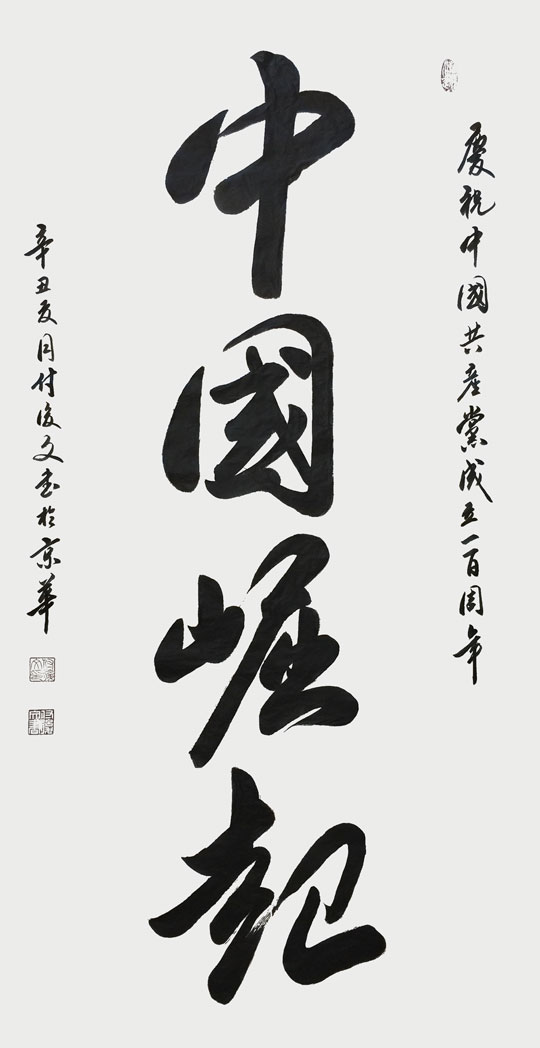 慶祝中國共産黨成立一百周年
中國崛起
辛丑夏月付俊文書於京華